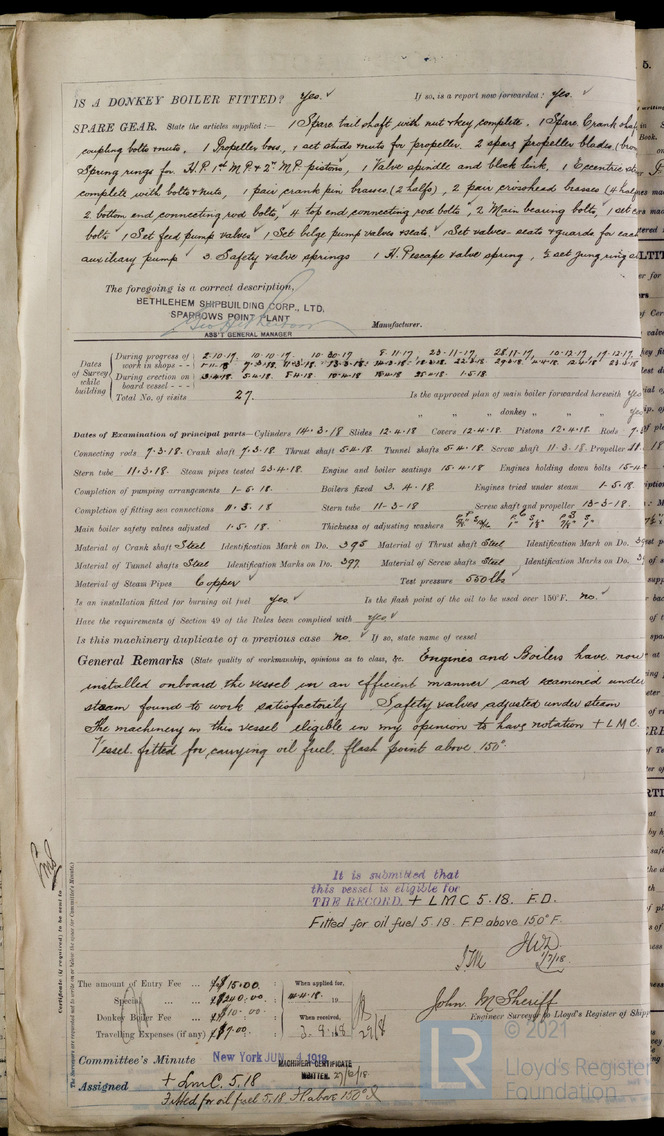 IS A DONKEY BOILER FITTED? Yes. If so, is a report now forwarded? Yes.
SPARE GEAR. State the articles supplied :— 1 Spare tail shaft with nut & key complete. 1 Spare Crank shaft
coupling bolts & nuts, 1 Propeller boss, 1 set studs & nuts for propeller. 2 spare propeller blades,
Spring rings for H.P. 1st M.P. & 2nd M.P. pistons, 1 Valve spindle and block link, 1 Eccentric
complete with bolts & nuts, 1 pair crank pin brasses (2 halfs), 2 pair crosshead brasses (4
2 bottom end connecting rod bolts, 4 top end connecting rod bolts, 2 Main bearing bolts, 1 set
bolts 1 Set feed pump valves 1 Set bilge pump valves & seats, 1 Set valves - seats & guards for each
auxiliary pump 3 Safety valve springs 1 H.P. escape valve spring, ½ set jung rings
The foregoing is a correct description,
BETHLEHEM SHIPBUILDING CORP., LTD.
SPARROWS POINT PLANT
ASS'T GENERAL MANAGER
Manufacturer.
Dates of Survey while building
During progress of work in shops - - 2.10.17. 10.10.17. 10.30.17 8.11.17 23.11.17 28.11.17 10.12.17 19.12.17
During erection on board vessel - - - 3.4.18 5.4.18 8.4.18 10.4.18 18.4.18 25.4.18 1.5.18
Total No. of visits 27.
Is the approved plan of main boiler forwarded herewith Yes
" " " donkey " " " Yes
Dates of Examination of principal parts—Cylinders 14.3.18 Slides 12.4.18 Covers 12.4.18 Pistons 12.4.18 Rods
Connecting rods 7.3.18 Crank shaft 7.3.18 Thrust shaft 5.4.18 Tunnel shafts 5.4.18 Screw shaft 11.3.18 Propeller
Stern tube 11.3.18 Steam pipes tested 23.4.18 Engine and boiler seatings 15.4.18 Engines holding down bolts 15.4
Completion of pumping arrangements 1-5.18. Boilers fixed 3.4.18 Engines tried under steam 1.5.18
Completion of fitting sea connections 11.3.18 Stern tube 11-3-18 Screw shaft and propeller 13-3-18
Main boiler safety valves adjusted 1.5.18. Thickness of adjusting washers
Material of Crank shaft Steel Identification Mark on Do. 395 Material of Thrust shaft Steel Identification Mark on Do.
Material of Tunnel shafts Steel Identification Marks on Do. 397 Material of Screw shafts Steel Identification Marks on Do.
Material of Steam Pipes Copper Test pressure 550 lbs
Is an installation fitted for burning oil fuel Yes. Is the flash point of the oil to be used over 150°F. No.
Have the requirements of Section 49 of the Rules been complied with Yes
Is this machinery duplicate of a previous case No. If so, state name of vessel
General Remarks (State quality of workmanship, opinions as to class, &c. Engines and Boilers have now
installed onboard the vessel in an efficient manner and examined under
steam found to work satisfactorily Safety valves adjusted under steam
The machinery in this vessel eligible in my opinion to have notation + LMC.
Vessel fitted for carrying oil fuel. flash point above 150°.
It is submitted that
this vessel is eligible for
THE RECORD. + LMC 5.18. F.D.
Fitted for oil fuel 5.18. F.P. above 150°F.
1/7/18.
Certificate (if required) to be sent to
The Surveyors are requested not to write on or below the space for Committee's Minute.
The amount of Entry Fee ... $15.00. When applied for,
Special ... ... $240.00. 14.4.18. 19
Donkey Boiler Fee ... $10.00. When received,
Travelling Expenses (if any) $7.00. 3.9.18 29/8
John McSheriff
Engineer Surveyor to Lloyd's Register of Shipp
Committee's Minute New York JUN 4 1918
MACHINERY CERTIFICATE
WRITTEN. 27/6/18.
Assigned + LMC. 5.18
Fitted for oil fuel 5.18 F.P. above 150°F
LR
© 2021
Lloyd's Register
Foundation